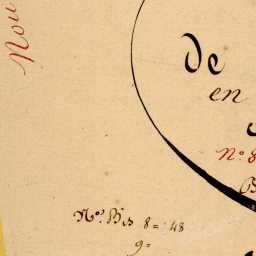 Nou
De
en
N° 8
N° Bis 8 = 48
9 =